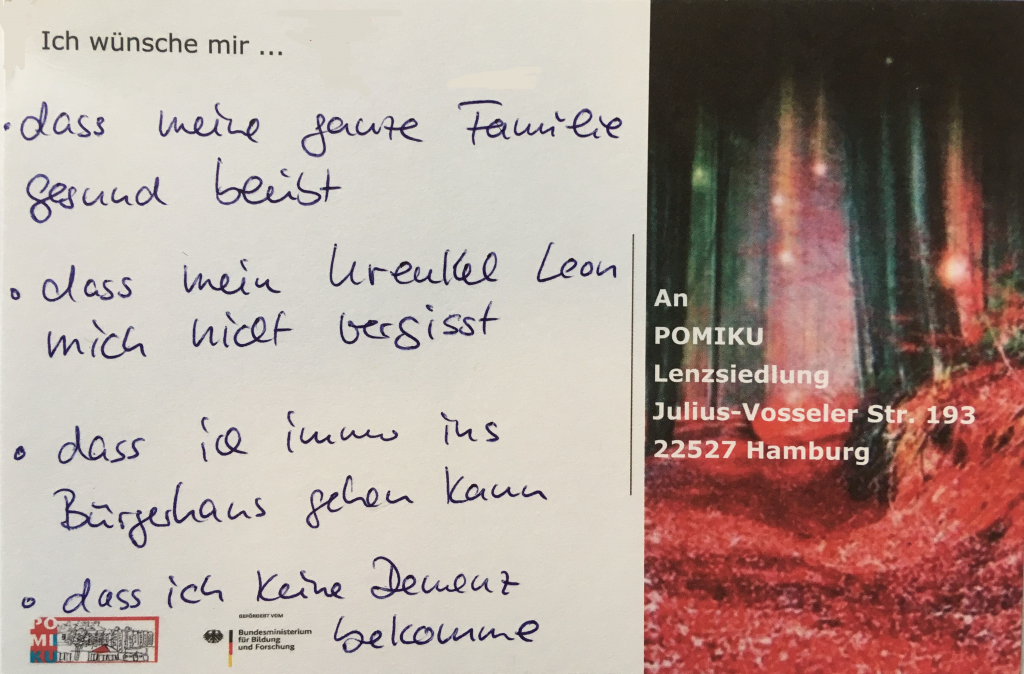 Ich wünsche mir ...
• dass meine ganze Familie
gesund bleibt
• dass mein Urenkel Leon
mich nicht vergisst
• dass ich immer ins
Bürgerhaus gehen kann
• dass ich keine Demenz
bekomme
PO
MI
KU
GEFÖRDERT VOM
Bundesministerium
für Bildung
und Forschung
An
POMIKU
Lenzsiedlung
Julius-Vosseler Str. 193
22527 Hamburg